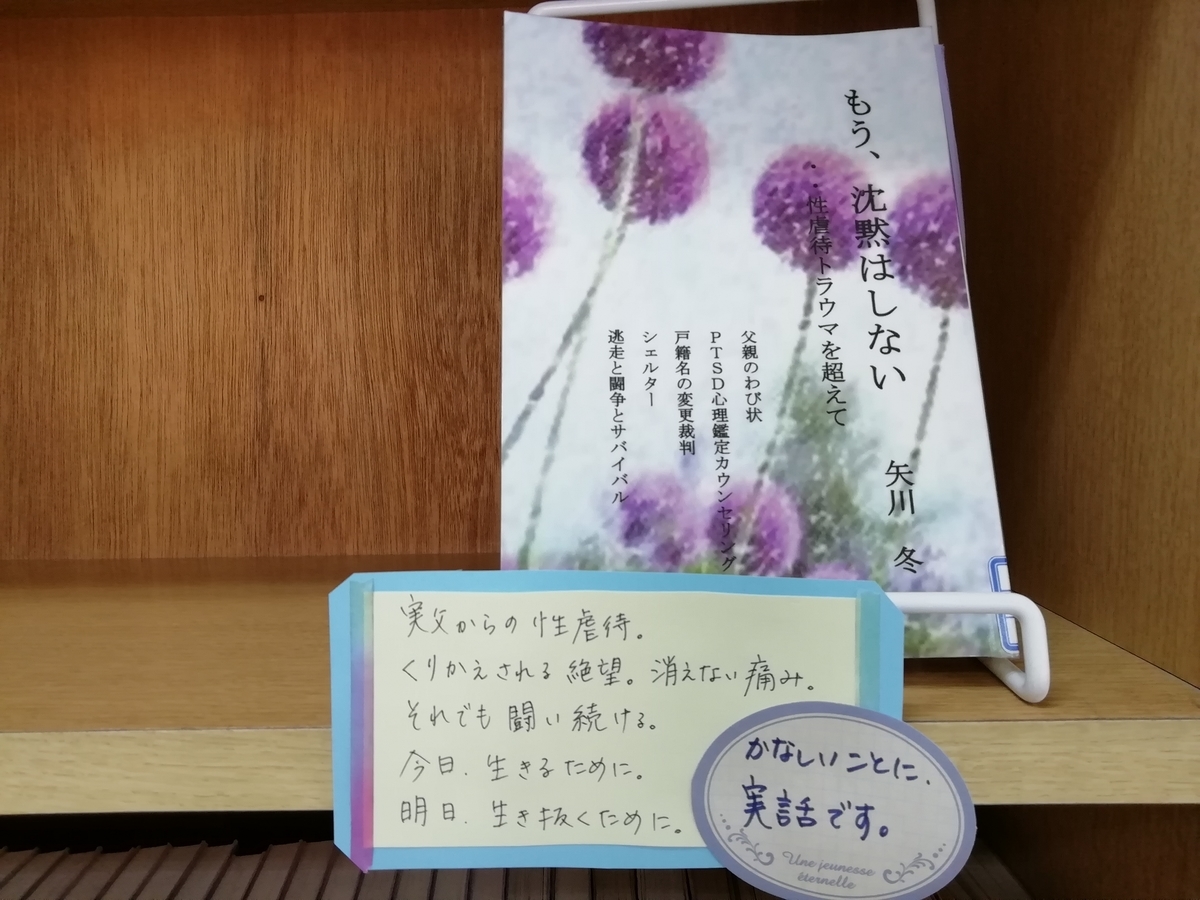 もう、沈黙はしない
・・性虐待トラウマを超えて
矢川 冬
父親のわび状
PTSD心理鑑定カウンセリング
戸籍名の変更裁判
シェルター
逃走と闘争とサバイバル
実父からの性虐待。
くりかえされる絶望。消えない痛み。
それでも闘い続ける。
今日、生きるために。
明日、生き抜くために。
かなしいことに、
実話です。
Une jeunesse
éternelle